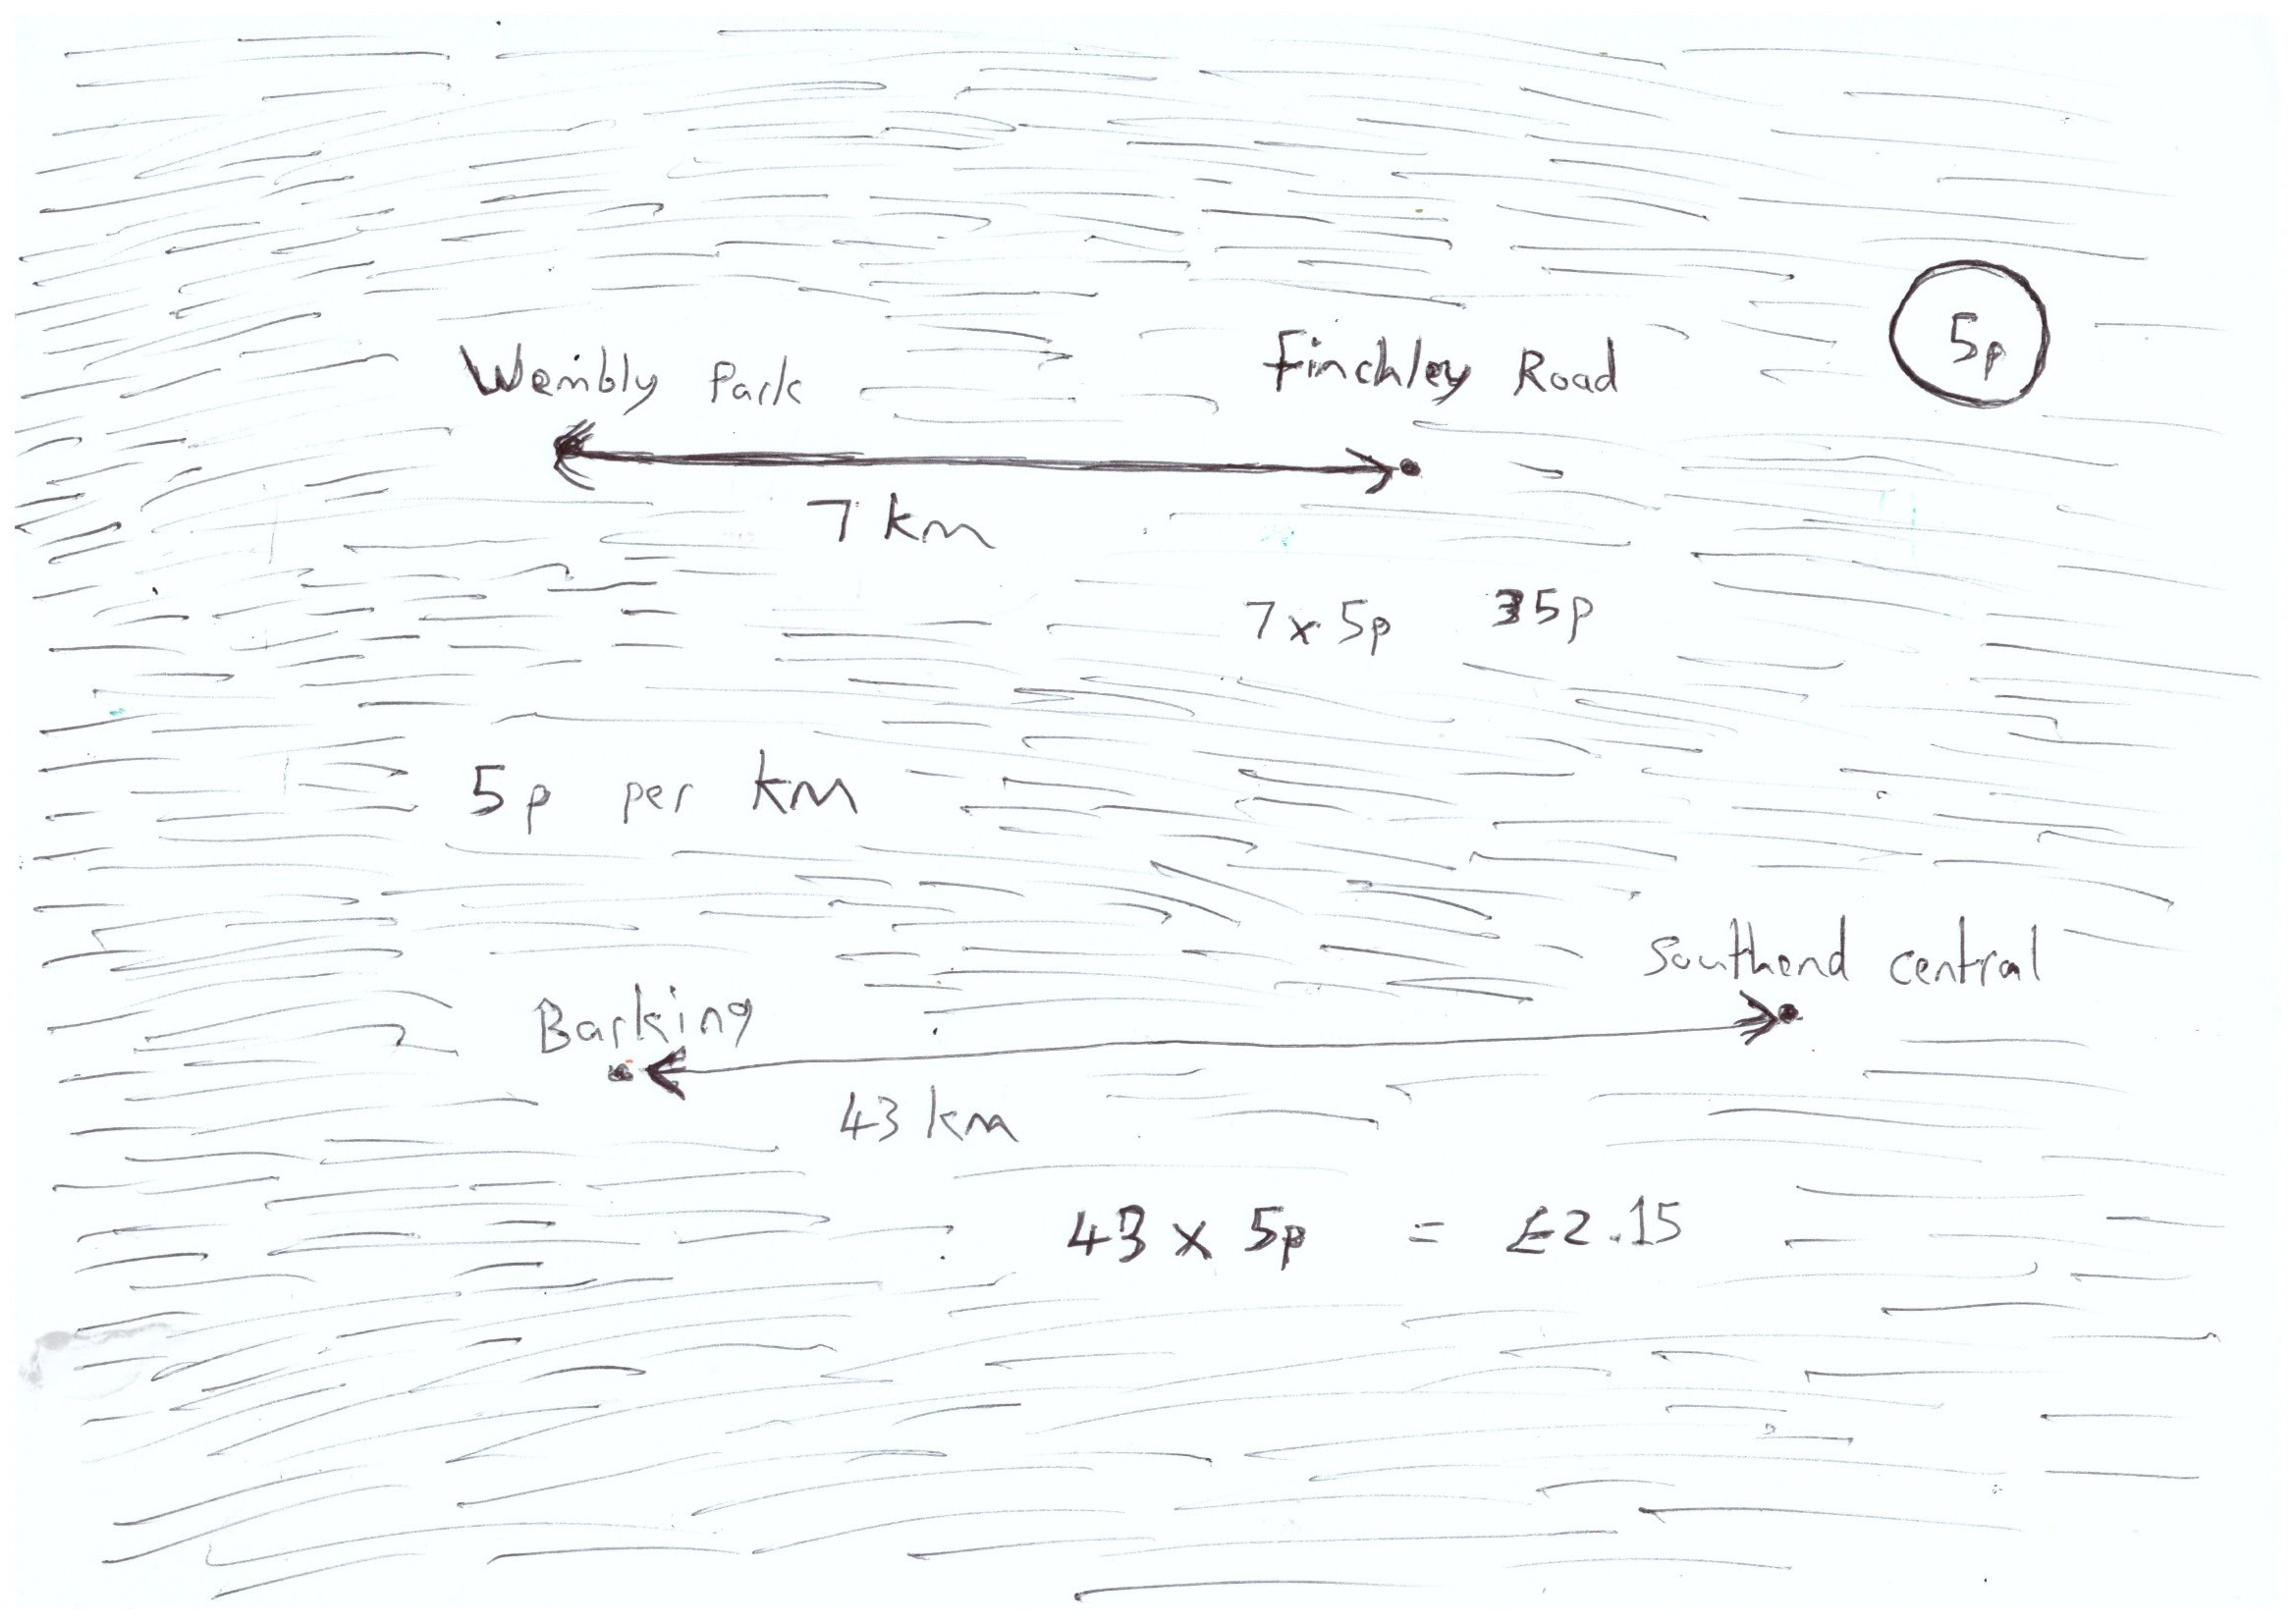 Wembly Park
Finchley Road
5p
7 km
7 x 5p 35p
5p per km
Southend central
Barking
43 km
43 x 5p = £2.15